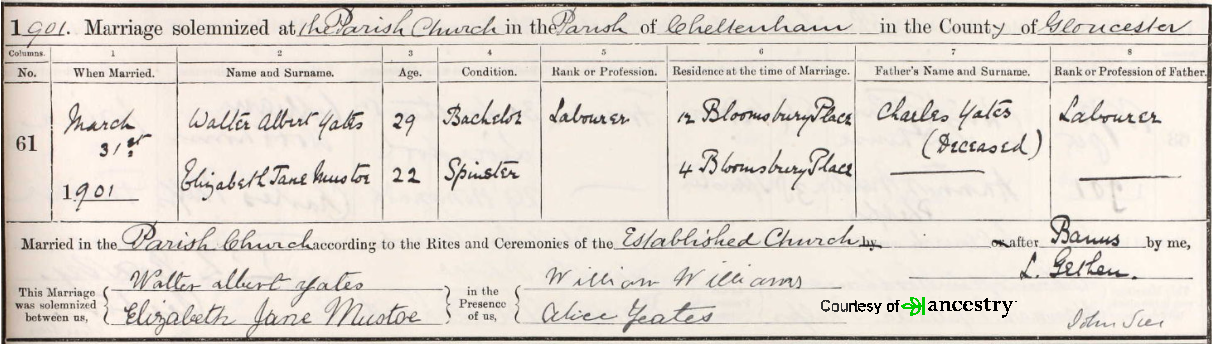 1901. Marriage solemnized at the Parish Church in the Parish of Cheltenham in the County of Gloucester
Columns. 1 2 3 4 5 6 7 8
No. When Married. Name and Surname. Age. Condition. Rank or Profession. Residence at the time of Marriage. Father's Name and Surname. Rank or Profession of Father.
61 March 31st 1901
Walter Albert Yates 29 Bachelor Labourer 12 Bloomsbury Place Charles Yates (Deceased) Labourer
Elizabeth Jane Mustoe 22 Spinster 4 Bloomsbury Place
Married in the Parish Church according to the Rites and Ceremonies of the Established Church by or after Banns by me,
L. Gethen.
This Marriage was solemnized between us,
Walter albert yates
Elizabeth Jane Mustoe
in the Presence of us,
William Williams
Alice Yeates
Courtesy of ancestry
John